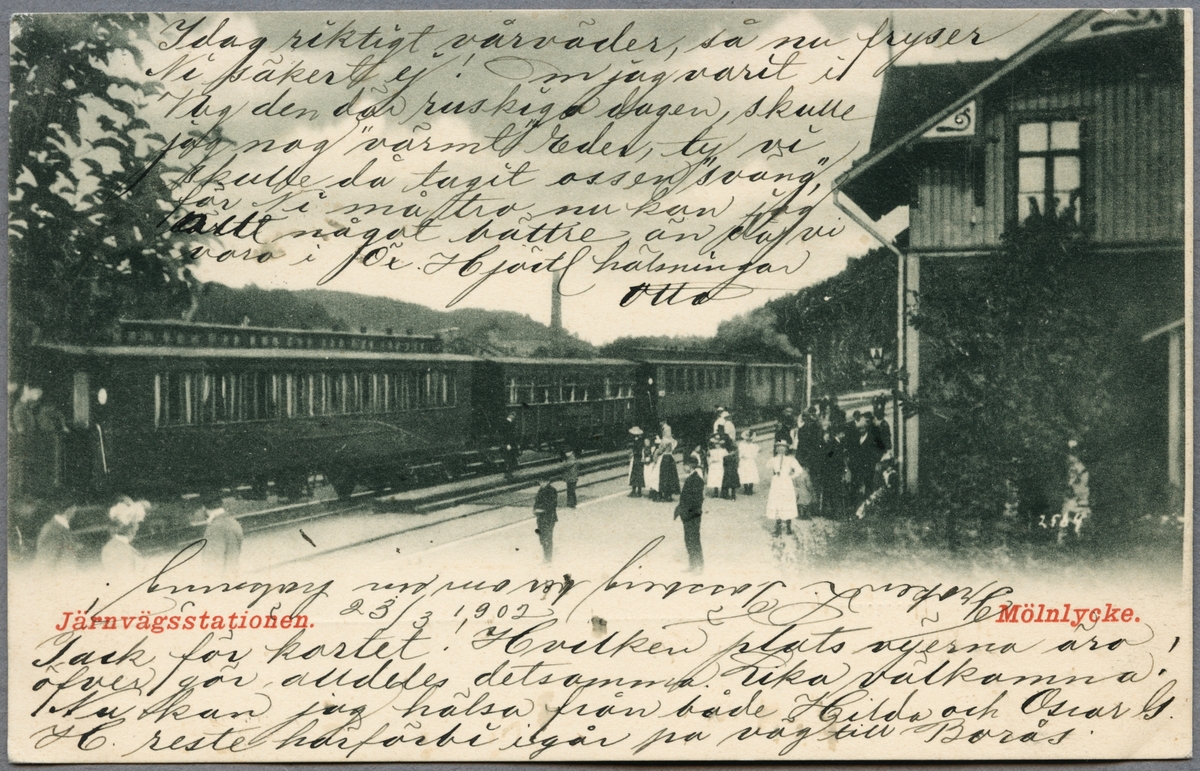 Idag riktigt vårväder, så nu fryser
Ni säkert ej! Om jag varit i
Vbg den där ruskiga dagen, skulle
jag nog "värmt" Eder, ty vi
skulle då tagit oss en "sväng",
för Ni må tro, nu kan jag
något bättre än då vi
voro i Öx. Hjärtl hälsningar
Otto
2569
Fröken
23/3 1902.
Järnvägsstationen. Mölnlycke.
Tack för kortet! Hvilken plats vyerna äro
öfver gör alldeles detsamma. Lika välkomna.
Nu skan jag hälsa från både Hilda och Oscar G.
H. reste härförbi igår på väg till Borås.